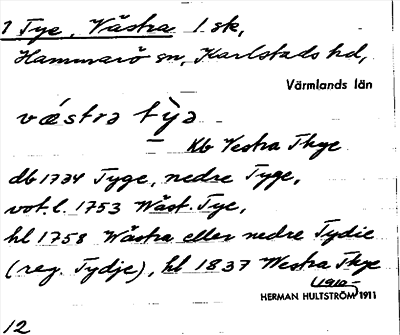 1 Tye, Västra 1 sk,
Hammarö sn, Karlstads hd,
Värmlands län
vǽstra tỳa
Kb Vestra Thye
db 1734 Tyge, nedre Tyge,
vot.l. 1753 Wäst. Tye,
hl 1758 Wästra eller nedre Tydie
(reg. Tydje), hl 1837 Westra Thye
(1910-
HERMAN HULTSTRÖM 1911
12